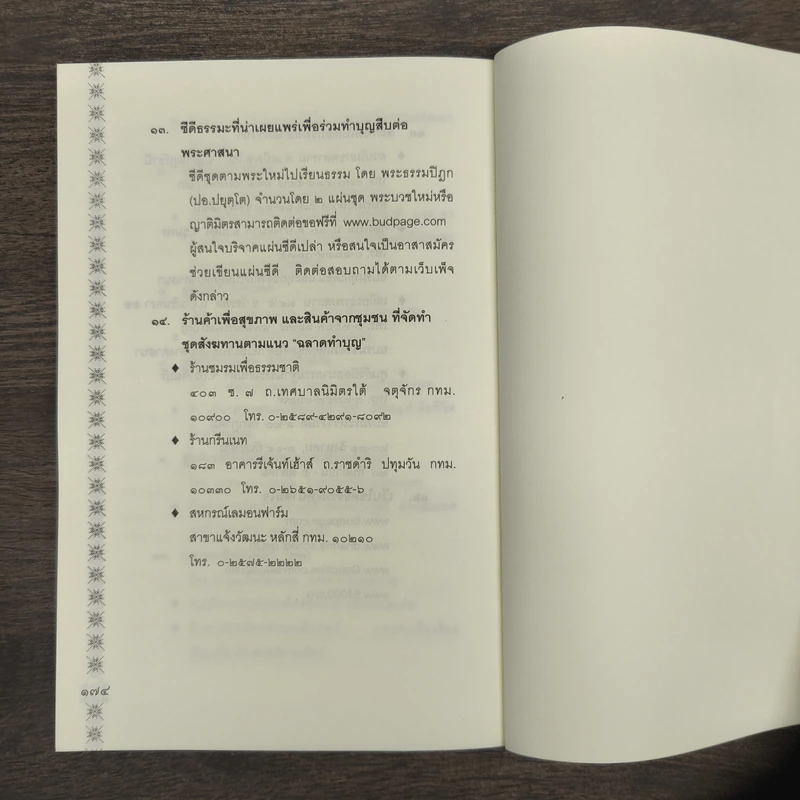 ๑๓. ซีดีธรรมะที่น่าเผยแพร่เพื่อร่วมทำบุญสืบต่อ
พระศาสนา
ซีดีชุดตามพระใหม่ไปเรียนธรรม โดย พระธรรมปิฎก
(ปอ.ปยุตฺโต) จำนวนโดย ๒ แผ่นชุด พระบวชใหม่หรือ
ญาติมิตรสามารถติดต่อขอฟรีที่ www.budpage.com
ผู้สนใจบริจาคแผ่นซีดีเปล่า หรือสนใจเป็นอาสาสมัคร
ช่วยเขียนแผ่นซีดี ติดต่อสอบถามได้ตามเว็บเพ็จ
ดังกล่าว
๑๔. ร้านค้าเพื่อสุขภาพ และสินค้าจากชุมชน ที่จัดทำ
ชุดสังฆทานตามแนว “ฉลาดทำบุญ”
♦ ร้านชมรมเพื่อธรรมชาติ
๔๐๓ ซ. ๗ ถ.เทศบาลนิมิตรใต้ จตุจักร กทม.
๑๐๙๐๐ โทร. ๐-๒๕๘๙-๔๒๙๑-๘๐๙๒
♦ ร้านกรีนเนท
๑๘๓ อาคารรีเจ้นท์เฮ้าส์ ถ.ราชดำริ ปทุมวัน กทม.
๑๐๓๓๐ โทร. ๐-๒๖๕๑-๙๐๕๕-๖
♦ สหกรณ์เลมอนฟาร์ม
สาขาแจ้งวัฒนะ หลักสี่ กทม. ๑๐๒๑๐
โทร. ๐-๒๕๗๕-๒๒๒๒
๑๗๔